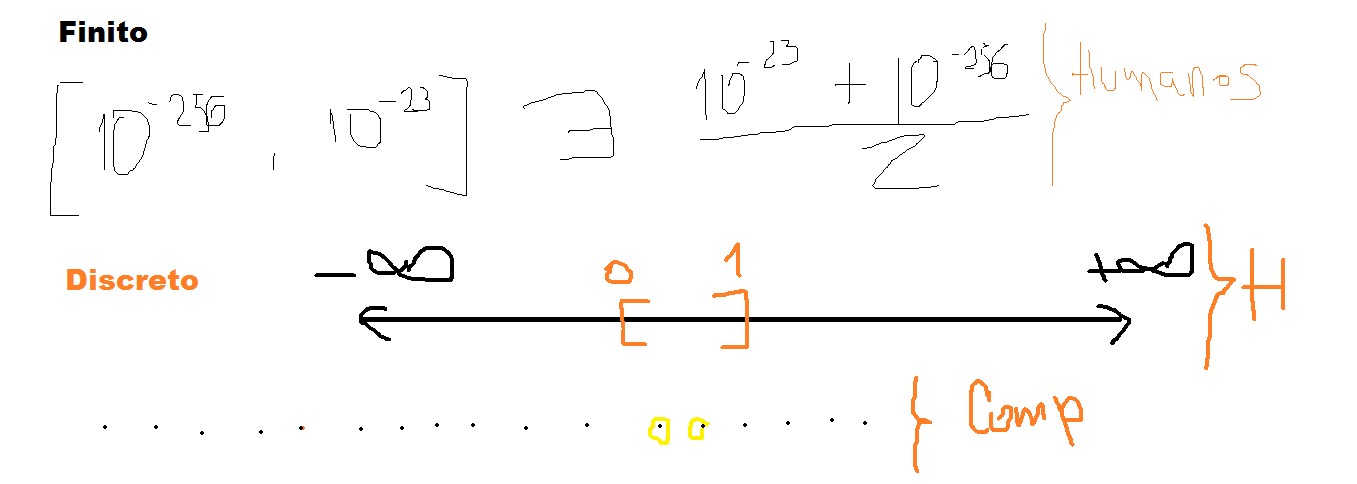 Finito
[10^-256 , 10^-23] ∋ (10^-23 + 10^-256)/2 } Humanos
Discreto
-∞ 0 1 +∞ } H
[ ]
. . . . . . . . . . . . . . . . . } Comp